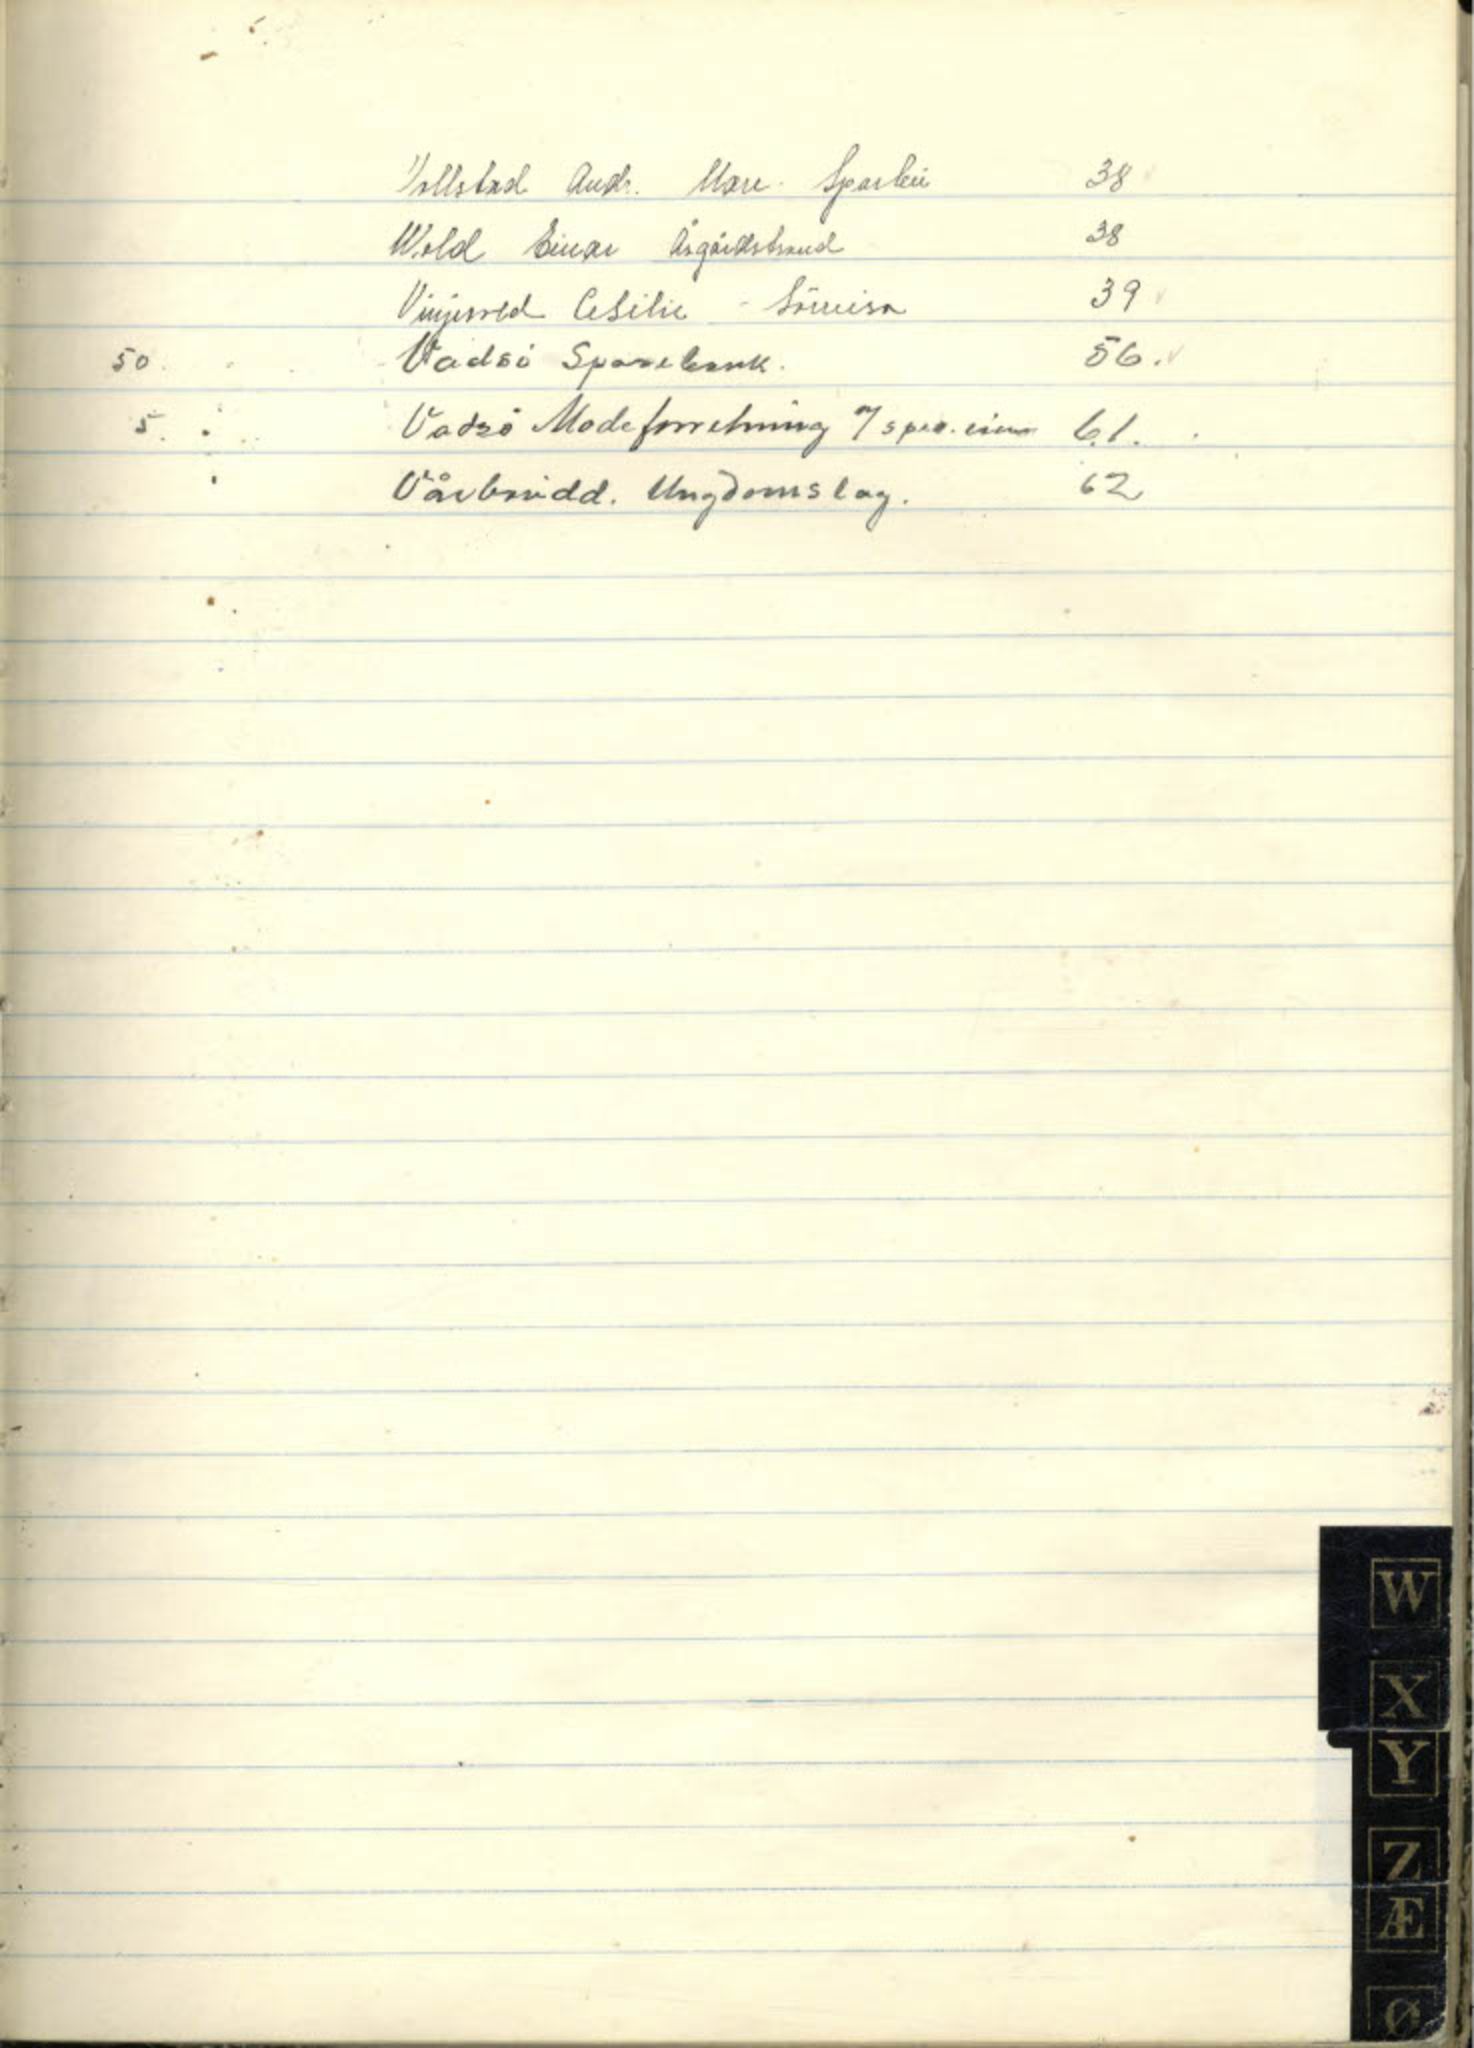 Vollstad Andr. Mare Sparbu 38
Wold Einar Åsgårdstrand 38
Cesilie - Sörreisa 39
50. Vadsö Sparebank. 56.
5. Vadsö Modeforretning 61.
Vårbrudd. Ungdomslag. 62
W
X
Y
Z
Æ
Ø